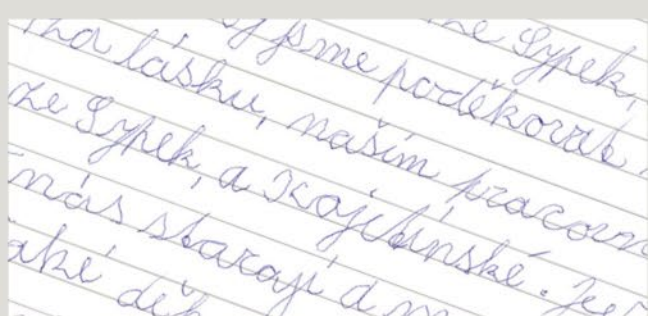 ze Sypek,
jsme poděkovali
za lásku, našim pracovn
ze Sypek, a Kojetínské.
nás starají a
aké děk